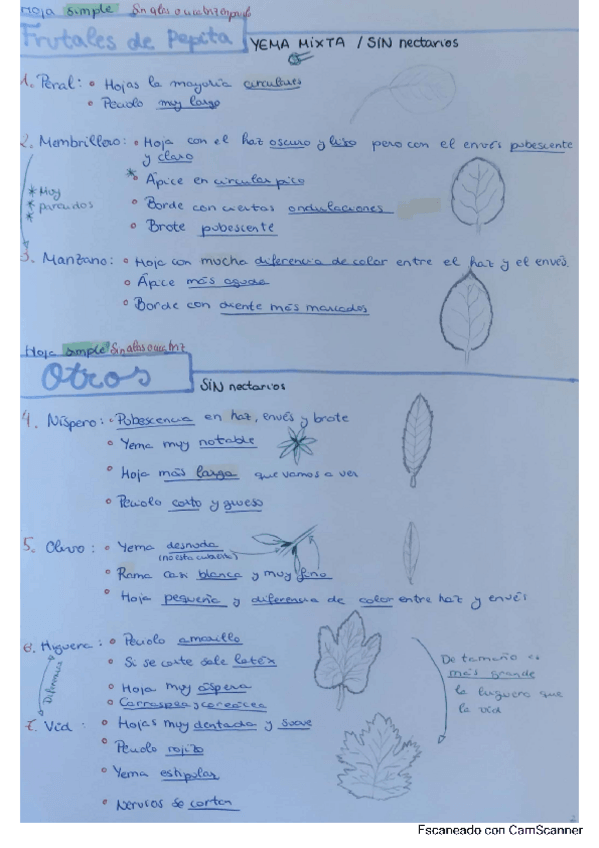 Hoja simple Sin alas o
Frutales de pepita YEMA MIXTA / SIN nectarios
1. Peral: • Hojas la mayoría circulares
• Peciolo muy largo
2. Membrillero: • Hoja con el haz oscuro y liso pero con el envés pubescente
y claro
* • Ápice en circular pico
* Muy parecidos
• Borde con ciertas ondulaciones
• Brote pubescente
3. Manzano: • Hoja con mucha diferencia de color entre el haz y el envés.
• Ápice más agudo
• Borde con más marcados
Hoja simple Sin alas o
Otros SIN nectarios
4. Níspero: • Pubescencia en haz, envés y brote
• Yema muy notable
• Hoja más larga que vamos a ver
• Peciolo corto y grueso
5. Olivo: • Yema desnuda
(no está cubierta)
• Rama casi blanca y muy fina
• Hoja pequeña y diferencia de color entre haz y envés
6. Higuera: • Peciolo amarillo
• Si se corta sale latéx
• Hoja muy áspera
• Carraspea y coreácea
Diferencia
De tamaño es
más grande
la higuera que
la vid
7. Vid: • Hojas muy dentada y suave
• Peciolo rojizo
• Yema estipular
• Nervios se cortan
Escaneado con CamScanner